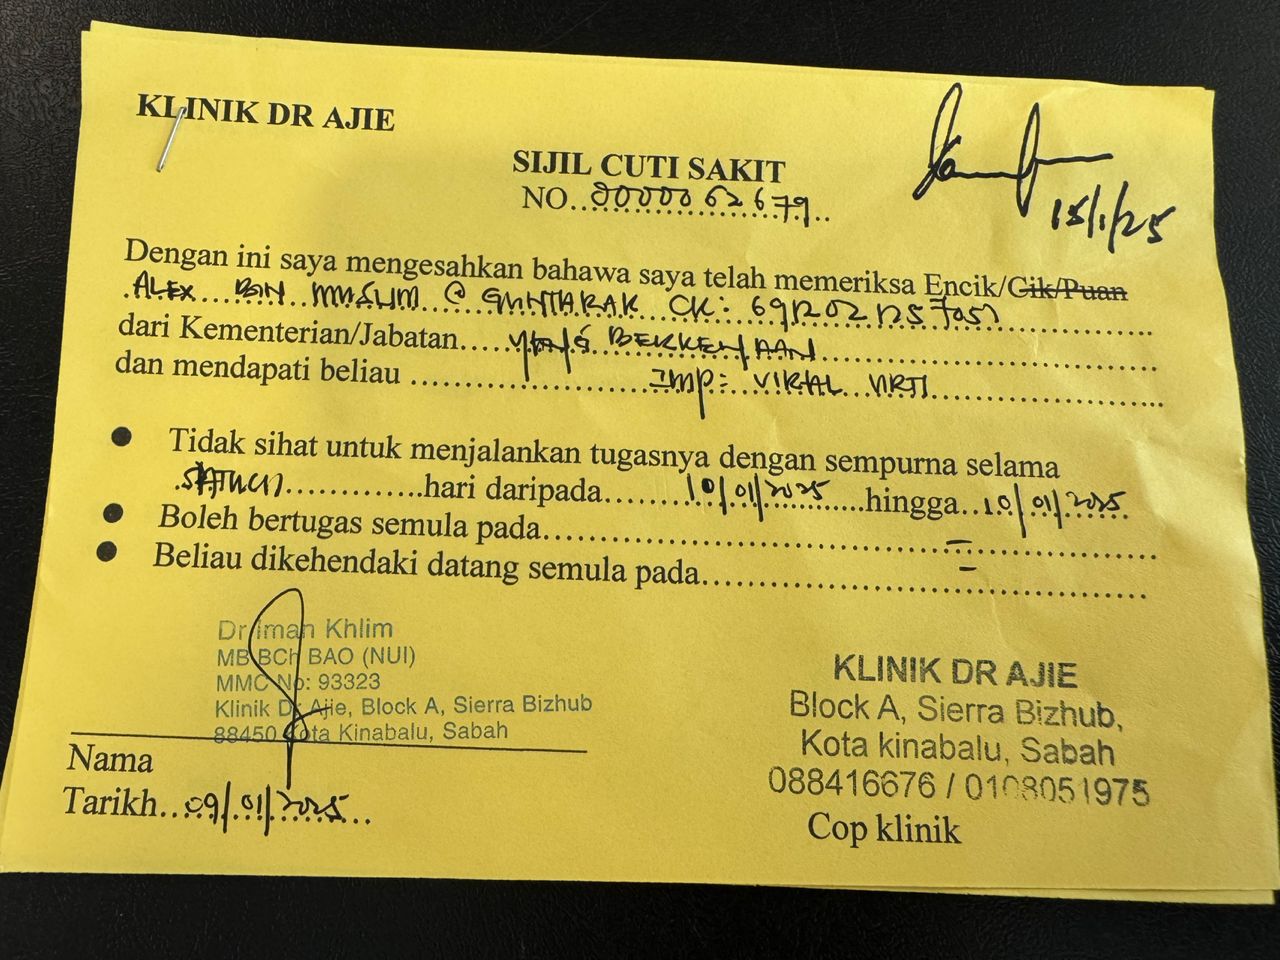 KLINIK DR AJIE
SIJIL CUTI SAKIT
NO...0000062679...
15/1/25
Dengan ini saya mengesahkan bahawa saya telah memeriksa Encik/Cik/Puan
ALEX BIN MUSLIM @ GUNTARAK CK: 691202125705
dari Kementerian/Jabatan.... YANG BERKENAAN
dan mendapati beliau ........ IMP: VIRAL URTI
● Tidak sihat untuk menjalankan tugasnya dengan sempurna selama
SATU (1).............hari daripada.......10/01/2025....hingga..10/01/2025
● Boleh bertugas semula pada.................................
● Beliau dikehendaki datang semula pada.................................
Dr Iman Khlim
MB BCh BAO (NUI)
MMC No: 93323
Klinik Dr Ajie, Block A, Sierra Bizhub
88450 Kota Kinabalu, Sabah
Nama
Tarikh...09/01/2025...
KLINIK DR AJIE
Block A, Sierra Bizhub,
Kota kinabalu, Sabah
088416676 / 0108051975
Cop klinik